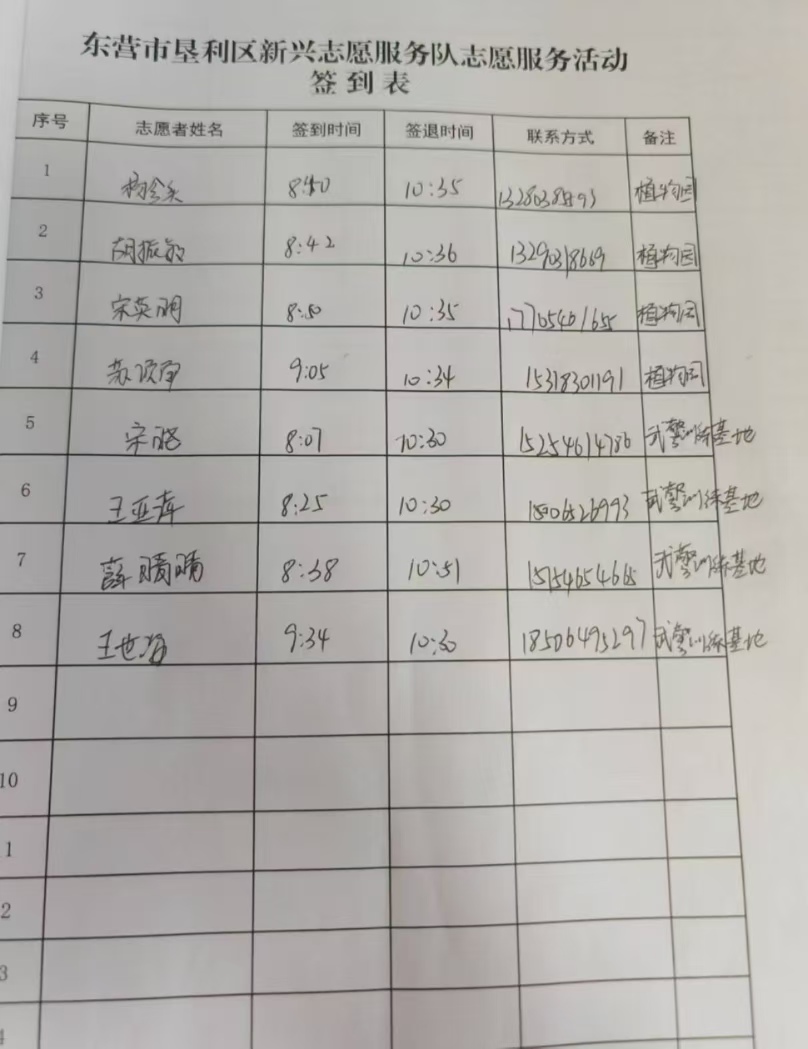 东营市垦利区新兴志愿服务队志愿服务活动
签到表
序号 志愿者姓名 签到时间 签退时间 联系方式 备注
1 10:35 植物园
2 胡振敏 8:42 10:36 13290318669 植物园
3 宋英明 8:50 10:35 17705461655 植物园
4 9:05 10:34 15318301191 植物园
5 8:07 10:30 15254614786 武警训练基地
6 王亚萍 8:25 10:30 武警训练基地
7 薛晴晴 8:38 10:51 15154654665 武警训练基地
8 王世海 9:34 10:30 18506495297 武警训练基地
9
10
1
2
3
4